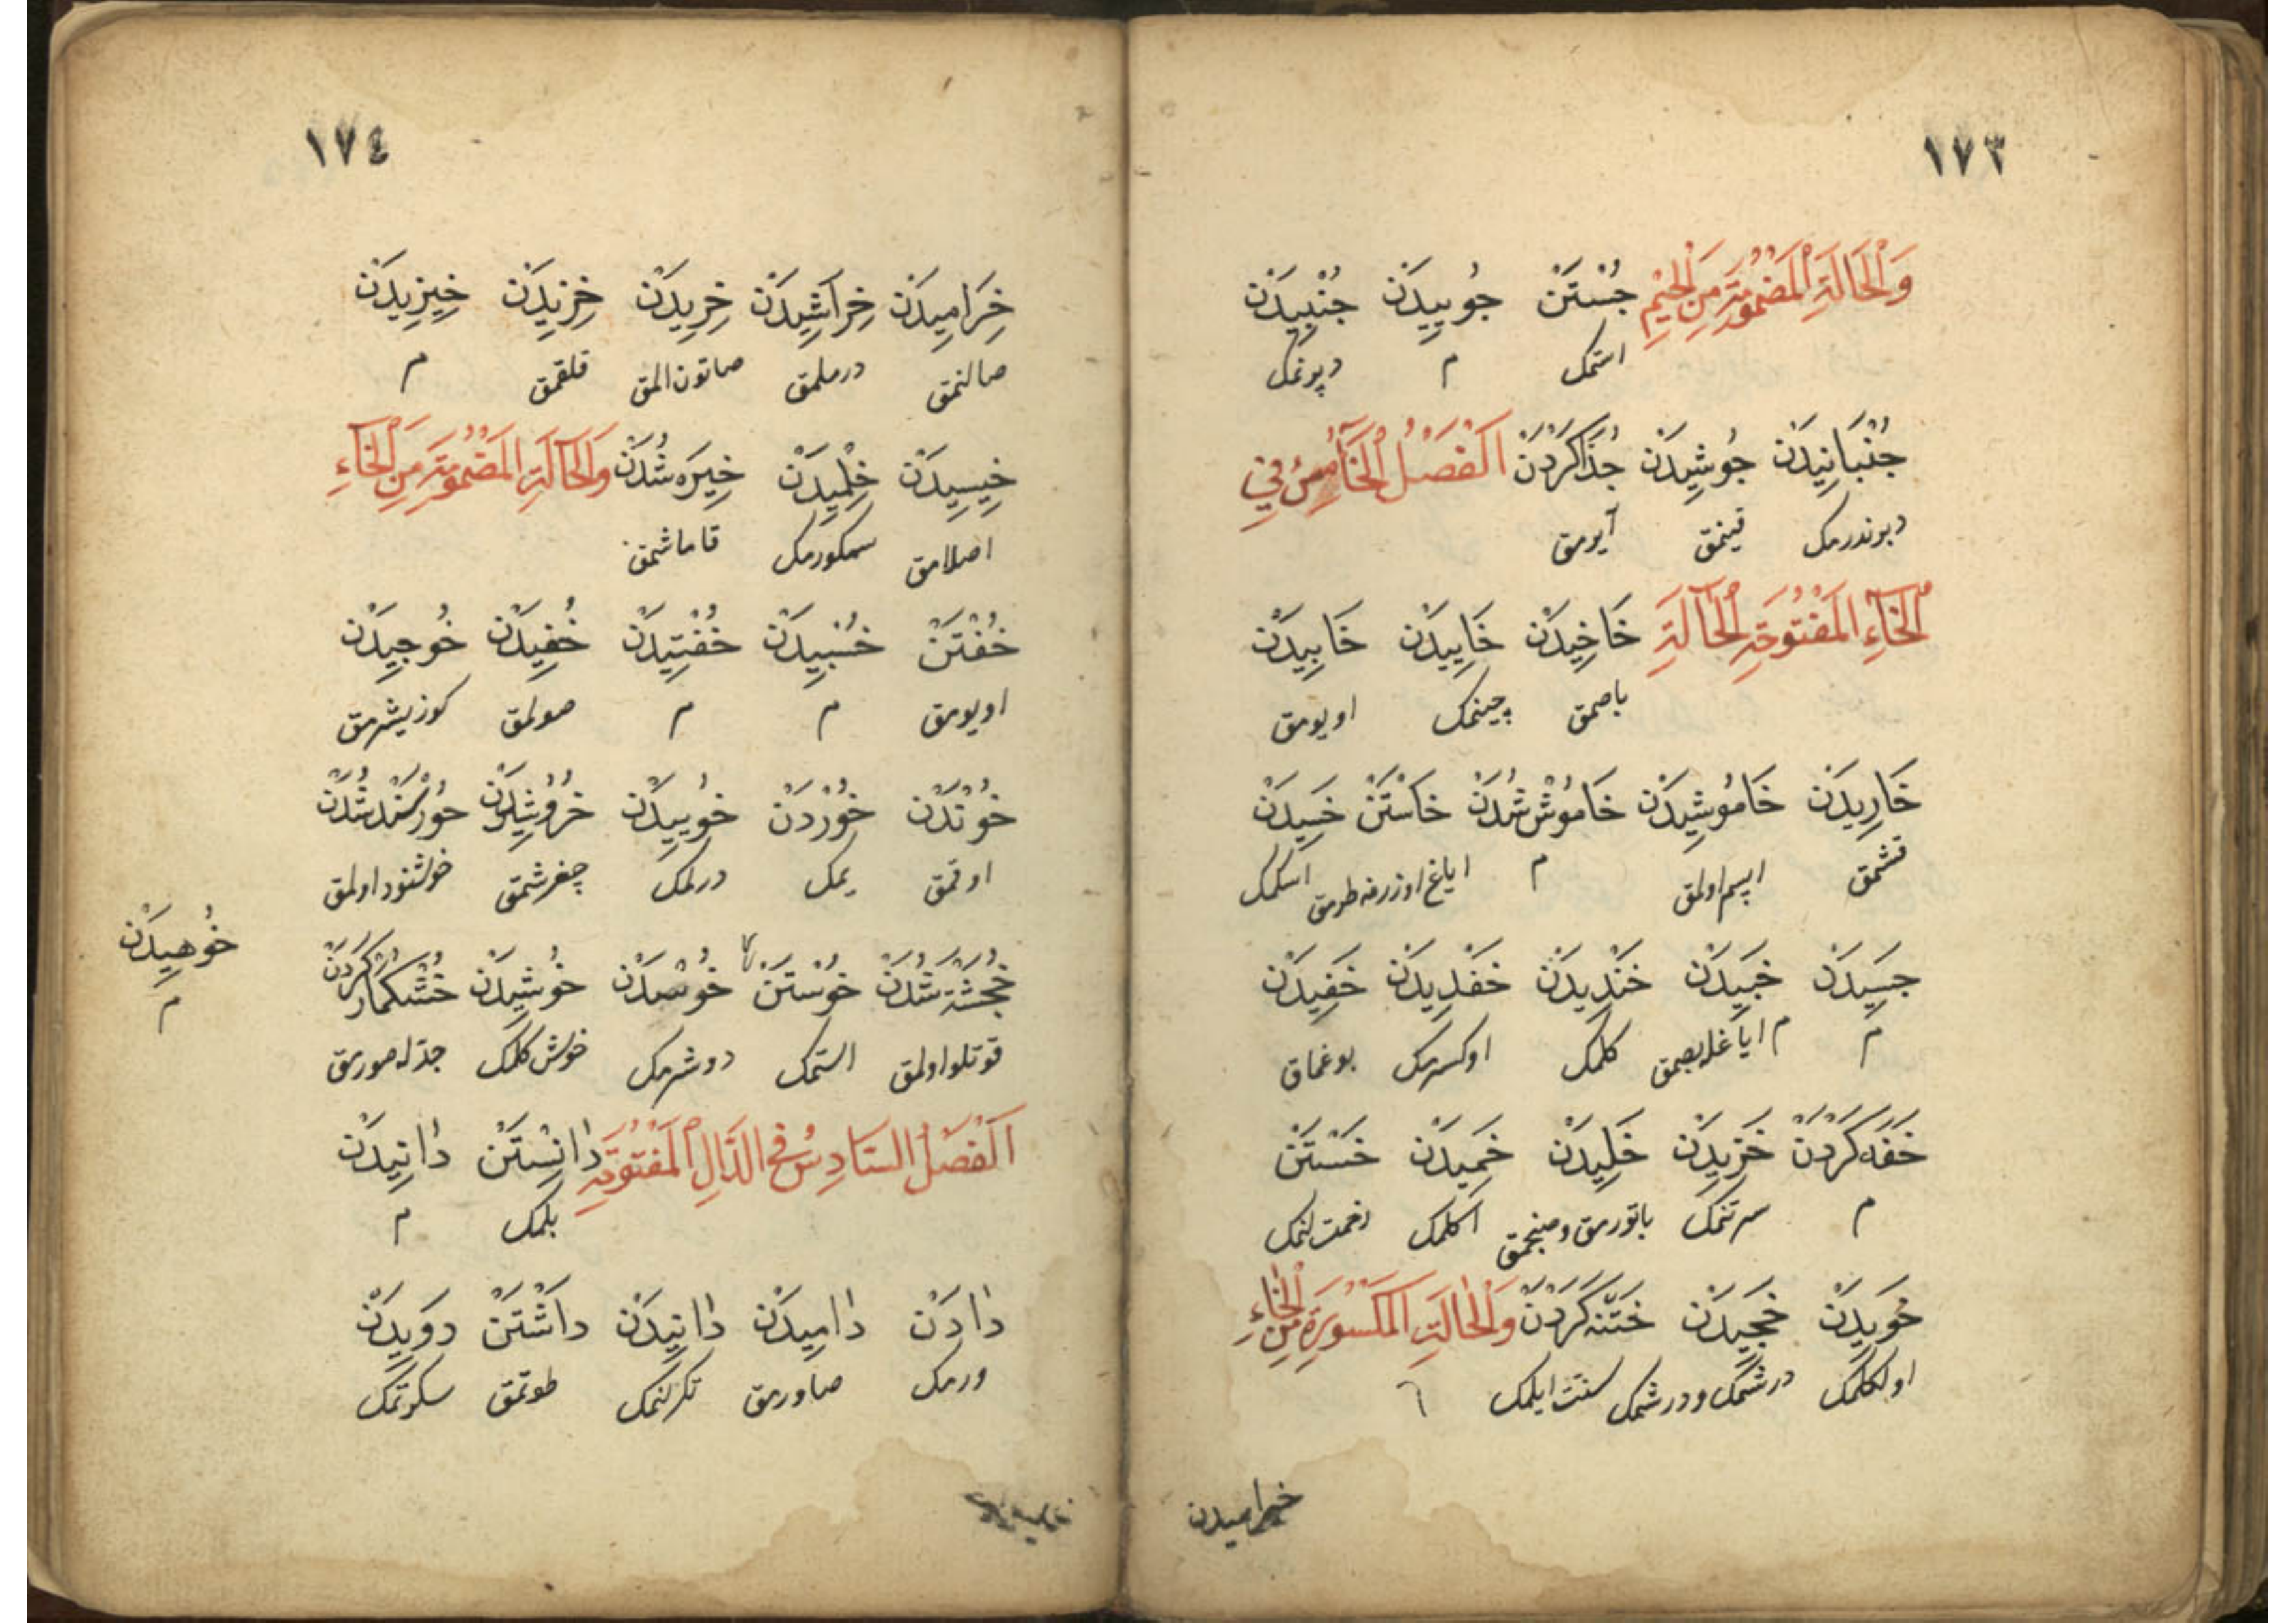 ١٧٣
وَالْحَالَةِ الْمَضْمُومَةِ مِنَ الْجِيْمِ جُسْتَنْ جُويِيدَنْ جُنْبِيدَنْ
استمك م دپرنمك
جُنْبَانِيدَنْ جُوشِيدَنْ جُدَا كَرْدَنْ اَلْفَصْلُ الْخَامِسُ فِي
دبرندرمك قينمق آيرمق
الْخَاءِ الْمَفْتُوحَةِ الْحَالَةِ خَاخِيدَنْ خَايِيدَنْ خَابِيدَنْ
باصمق چينمك اويومق
خَارِيدَنْ خَامُوشِيدَنْ خَامُوشْ شُدَنْ خَاسْتَنْ خَسِيدَنْ
قشمق ابسم اولمق م اياغ اوزرنه طرمق اسكمك
جَسِيدَنْ خَبِيدَنْ خَنْدِيدَنْ خَفْدِيدَنْ خَفِيدَنْ
م م اياغله بصمق كلمك اوكسرمك بوغماق
خَفَه كَرْدَنْ خَزِيدَنْ خَلِيدَنْ خَمِيدَنْ خَسْتَنْ
م سرتنمك باتورمق وصنجمق اكلمك زحمت لنمك
خَوِيدَنْ خَجِيدَنْ خَتْنَه كَرْدَنْ وَالْحَالَةِ الْمَكْسُورَةِ مِنَ الْخَاءِ
اولكلمك درشمك ودرشمك سنت ايلمك
خراميدن
١٧٤
خِرَامِيدَنْ خِرَاشِيدَنْ خِرِيدَنْ خِزِيدَنْ خِيزِيدَنْ
صالنمق درملمق صاتون المق قلقمق م
خِيسِيدَنْ خِلْمِيدَنْ خِيرَه شُدَنْ وَالْحَالَةِ الْمَضْمُومَةِ مِنَ الْخَاءِ
اصلامق سمكورمك قاماشمق
خُفْتَنْ خُسْبِيدَنْ خُفْتِيدَنْ خُفِيدَنْ خُوجِيدَنْ
اويومق م م صولمق كوز يشرمق
خُونْدَنْ خُوْرْدَنْ خُويِيدَنْ خُرُوشِيدَنْ خُورْسَنْد شُدَنْ
اوقمق يمك درلمك چغرشمق خوشنود اولمق
خُجَشْتَه شُدَنْ خُوسْتَنْ خُوشِيدَنْ خُشْكَمَار كَرَدَنْ
قوتلو اولمق استمك دوشرمك خوش كلمك جدله صورمق
خُوهِيدَنْ
م
اَلْفَصْلُ السَّادِسُ فِي الدَّالِ الْمَفْتُوحَةِ دَانِسْتَنْ دَانِيدَنْ
بلمك م
دَادَنْ دَامِيدَنْ دَانِيدَنْ دَاشْتَنْ دَوِيدَنْ
ورمك صاورمق تكرلنمك طوتمق سكرتمك